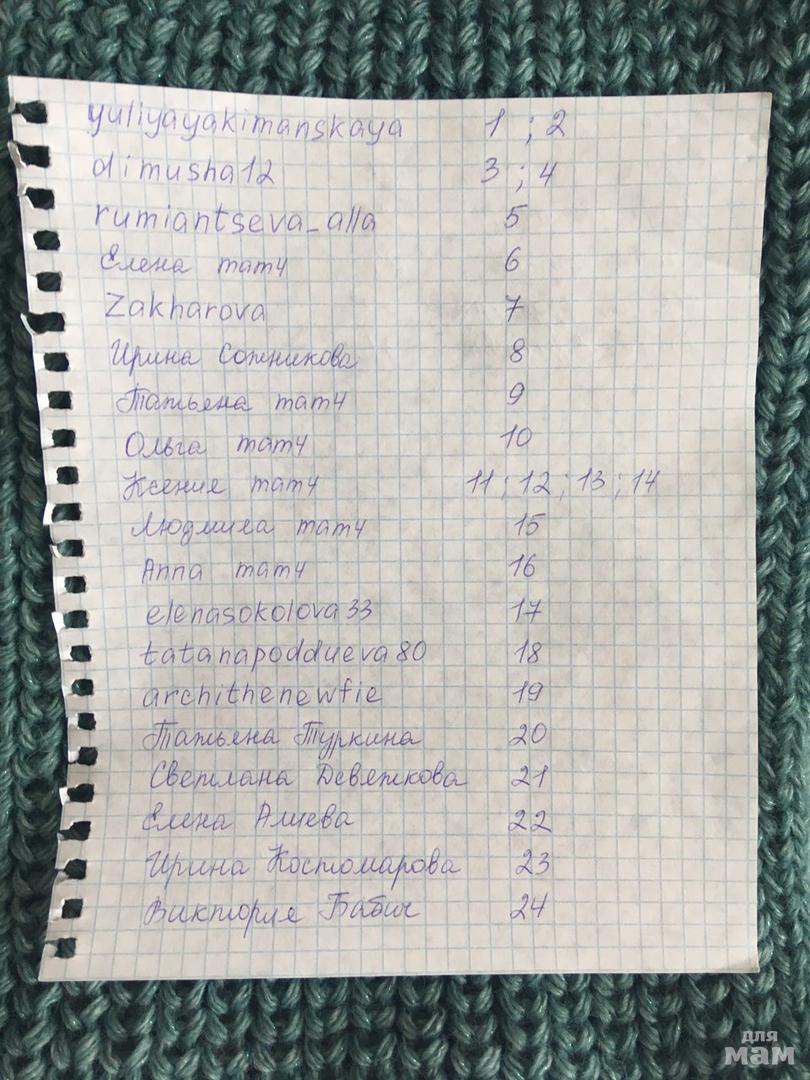 yuliyayakimanskaya 1 ; 2
dimusha12 3 ; 4
rumiantseva_alla 5
Елена mam4 6
Zakharova 7
Ирина Сотникова 8
Татьена mam4 9
Ольга mam4 10
Ксение mam4 11 ; 12 ; 13 ; 14
Людмила mam4 15
Анна mam4 16
elenasokolova33 17
tatanapoddueva80 18
archithenewfie 19
Татьена Туркина 20
Светлана Девяткова 21
Елена Алиева 22
Ирина Костомарова 23
Викторие Бабич 24
для
мам